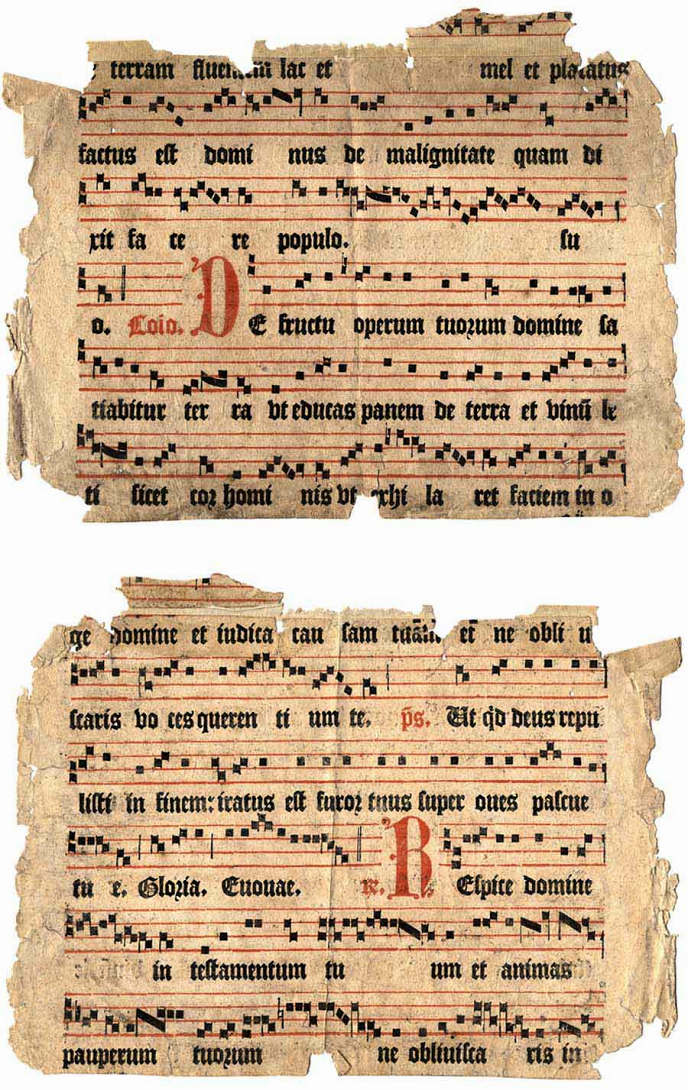 terram fluentem lac et mel et placatus
factus est domi nus de malignitate quam di
xit fa ce re populo. su
o. Coio. DE fructu operum tuorum domine sa
tiabitur ter ra vt educas panem de terra et vinū le
ti ficet cor homi nis vt exhi la ret faciem in o
ge domine et iudica cau sam tuam et ne obli u
scaris vo ces queren ti um te. ps. Ut qd deus repu
listi in finem: iratus est furor tuus super oues pascue
tu e. Gloria. Euouae. REspice domine
in testamentum tu um et animas
pauperum tuorum ne obliuisca ris in